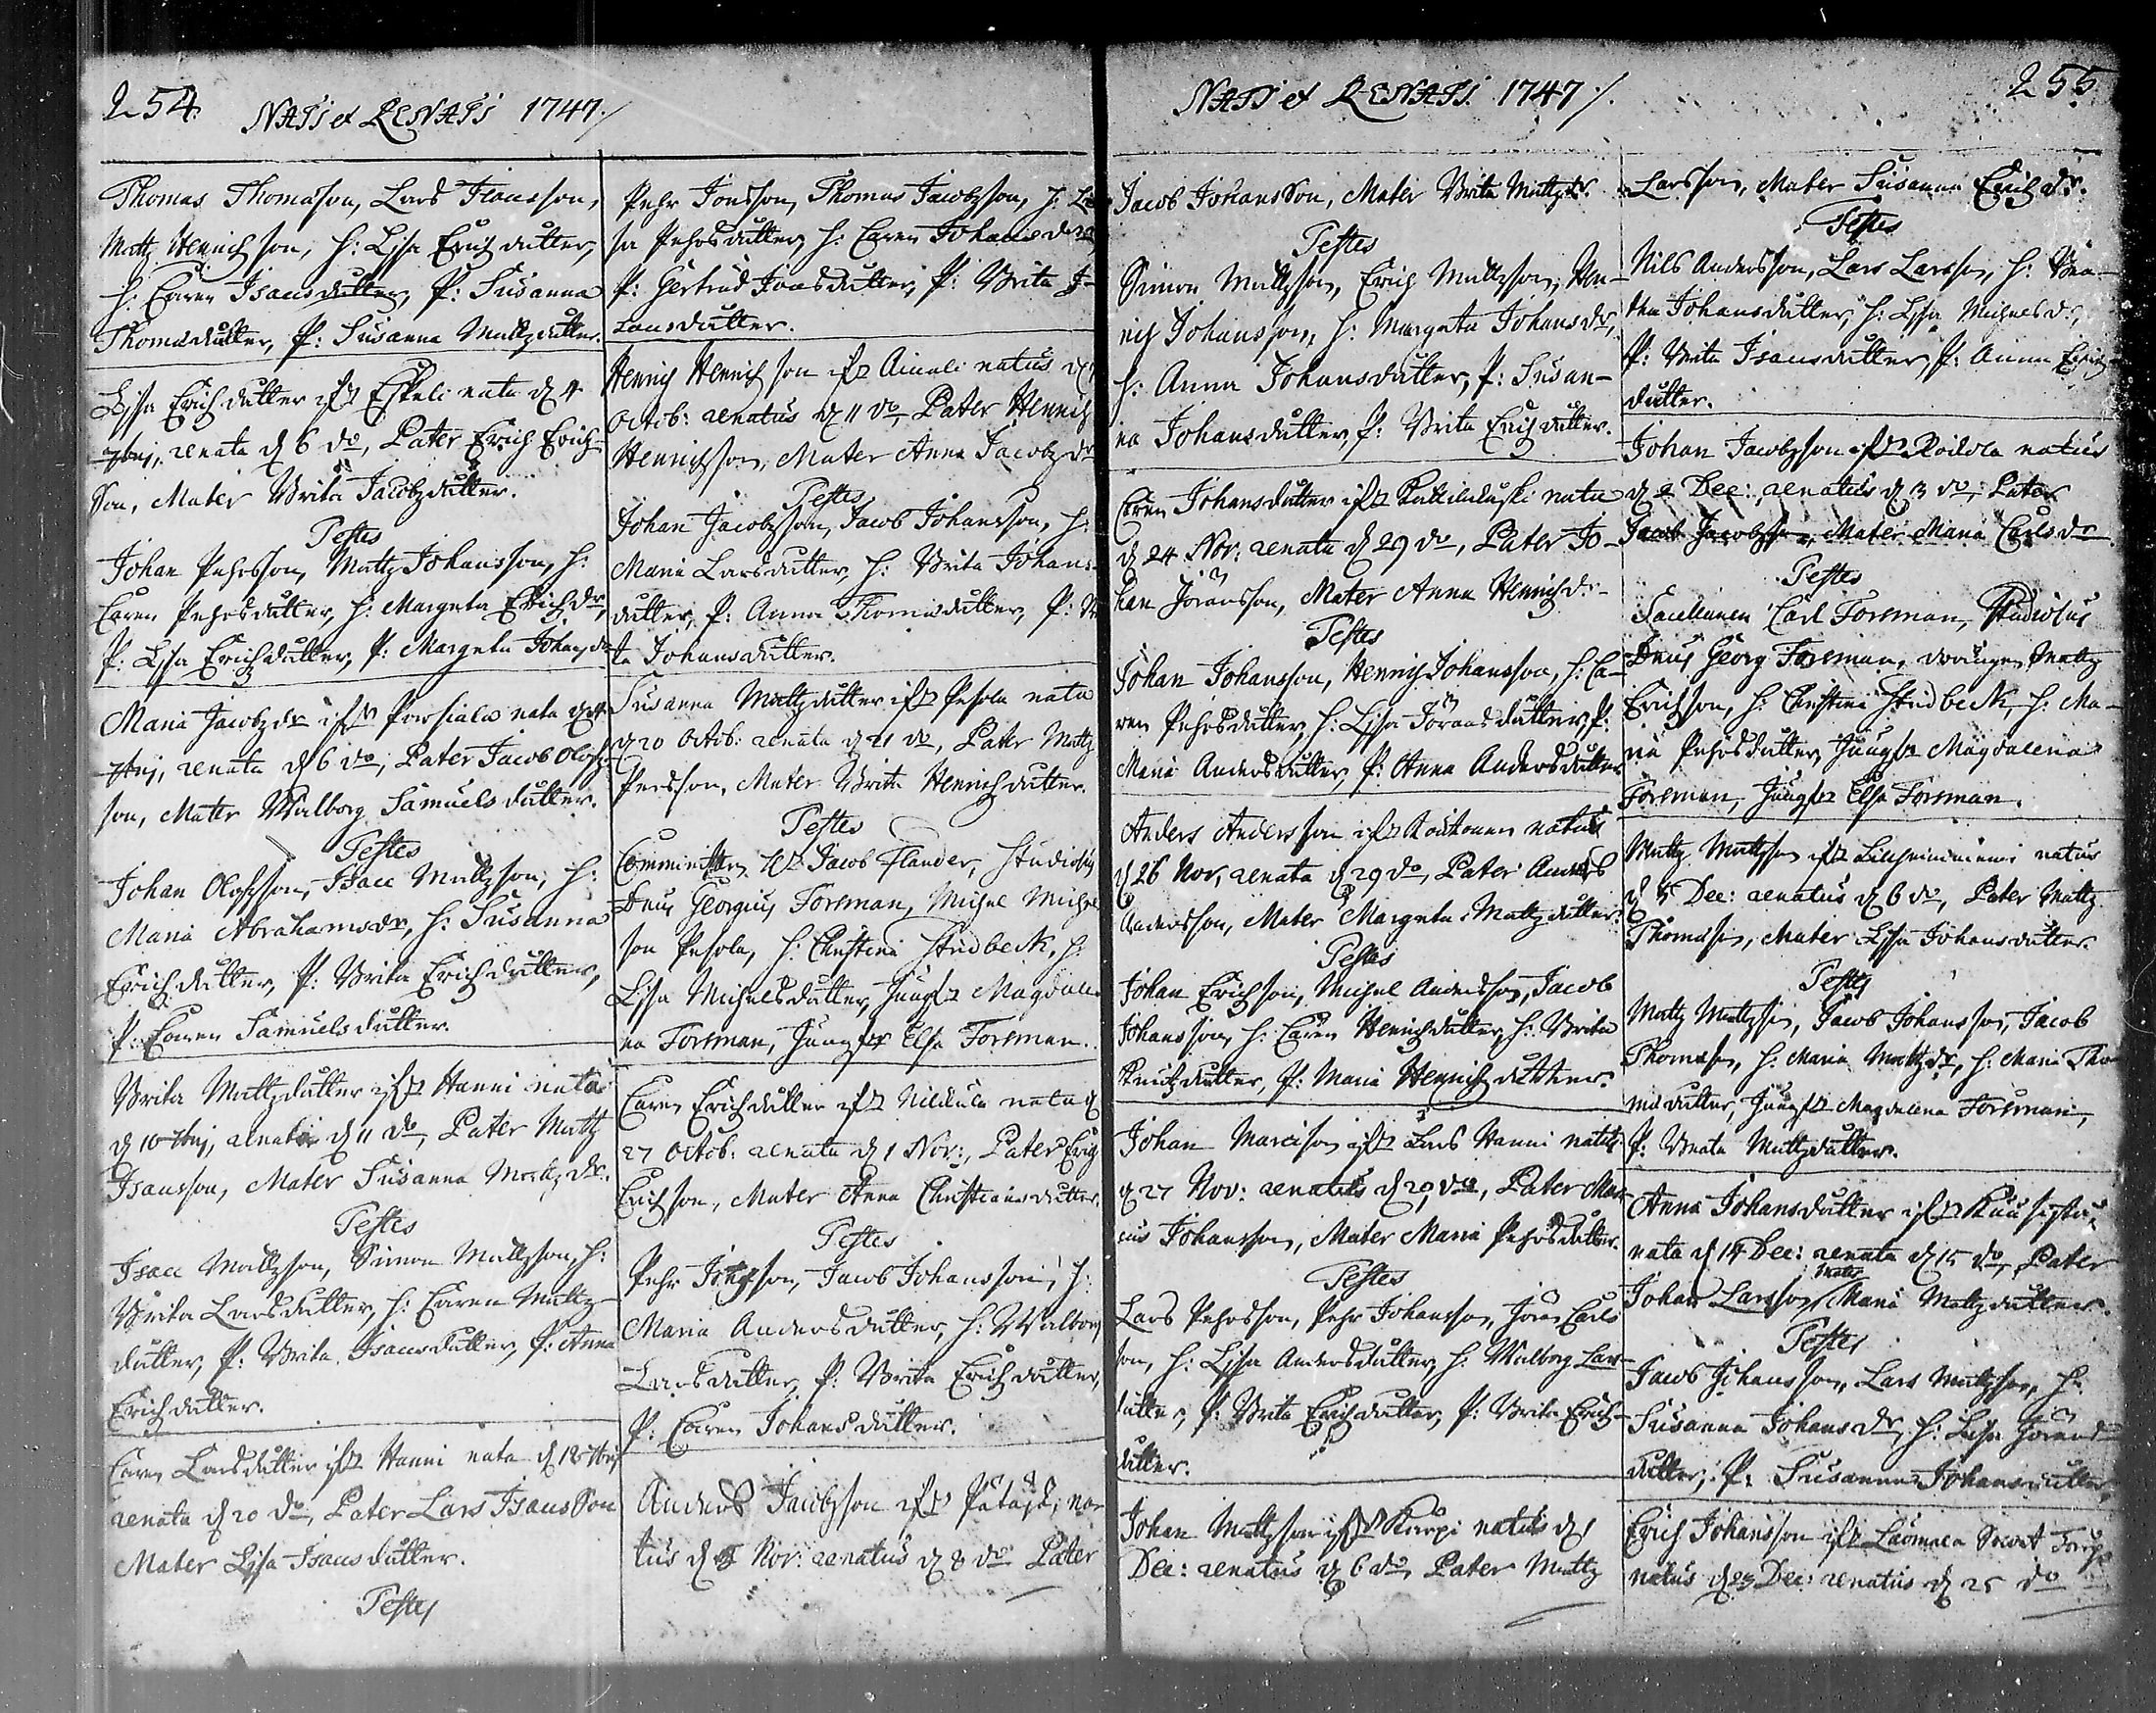 254. NATI et RENATI 1747./.
Thomas Thomasson, Lars Isacsson,
Mattz Henrichson, H: Lisa Erichdutter,
H: Caren Isacsdutter, P: Susanna
Thomasdutter, P: Susanna Mattzdutter.
Lisa Erichdutter ifr. Eskeli nata d 4
7bris, renata d 6 do, Pater Erich Erich-
son, Mater Brita Jacobzdutter.
Testes
Johan Pehrsson, Mattz Johansson, H:
Caren Pehrsdutter, H: Margeta Erichdr,
P: Lisa Erichdutter, P: Margeta Johansdr
Maria Jacobzdr ifr nata d
7bris, renata d 6 do, Pater Jacob Olofs-
son, Mater Walborg Samuelsdutter.
Testes
Johan Olofsson, Isac Mattzson, H:
Maria Abrahamsdr, H: Susanna
Erichdutter, P: Brita Erichdutter,
P: Caren Samuelsdutter.
Brita Mattzdutter ifr Hanni nata
d 10 7bris, renata d 11 do, Pater Mattz
Isacsson, Mater Susanna Mattzdr.
Testes
Isac Mattzson, Simon Mattzson, H:
Brita Larsdutter, H: Caren Mattz-
dutter, P: Brita Isacsdutter, P: Anna
Erichdutter.
Caren Larsdutter ifr Hanni nata d 18 7bris
renata d 20 do, Pater Lars Isacsson
Mater Lisa Isacsdutter.
Testes
Pehr Jonsson, Thomas Jacobzson, H: Li-
sa Pehrsdutter, H: Caren Johansdr,
P: Gertrud Jonsdutter, P: Brita I-
sacsdutter.
Henrich Henrichson ifr Ainali natus d
Octob: renatus d 11 do, Pater Henrich
Henrichsson, Mater Anna Jacobzdr
Testes
Johan Jacobzson, Jacob Johansson, H:
Maria Larsdutter, H: Brita Johans-
dutter, P: Anna Thomasdutter, P: 
ta Johansdutter.
Susanna Mattzdutter ifr Pesola nata
d 20 Octob: renata d 21 do, Pater Mattz
Persson, Mater Brita Henrichdutter.
Testes
Comminister Hr Jacob Flander, Studiosus
Dnus Georgius Forsman, Michel Michel-
son Pesola, H: Christina Studbeck, H:
Lisa Michelsdutter, Jungfr Magdale-
na Forsman, Jungfr Elsa Forsman.
Caren Erichdutter ifr Nikkula nata d
27 Octob: renata d 1 Nov:, Pater Erich
Erichson, Mater Anna Christiansdutter.
Testes
Pehr son, Jacob Johansson, H:
Maria Andersdutter, H: Walborg
Larsdutter, P: Brita Erichdutter,
P: Caren Johansdutter.
Anders Jacobzson ifr na-
tus d Nov: renatus d 8 do Pater
NATI et RENATI 1747 ./. 255
Jacob Johansson, Mater Brita Mattzdr.
Testes
Simon Mattzson, Erich Mattzson, Hen-
rich Johansson, H: Margeta Johansdr,
H: Anna Johansdutter, P: Susan-
na Johansdutter, P: Brita Erichdutter.
Caren Johansdutter ifr nata
d 24 Nov: renata d 29 do, Pater Jo-
han Jöransson, Mater Anna Henrichdr-
Testes
Johan Johansson, Henrich Johansson, H: Ca-
ren Pehrsdutter, H: Lisa Jöransdutter, P:
Maria Andersdutter, P: Anna Andersdutter
Anders Andersson ifr natus
d 26 Nov, renata d 29 do, Pater Anders
Andersson, Mater Margeta Mattzdutter.
Testes
Johan Erichson, Michel Andersson, Jacob
Johansson, H: Caren Henrichdutter, H: Brita
Knutzdutter, P: Maria Henrichdutter.
Johan Marcison ifr Lars Hanni natus
d 27 Nov: renatus d 29 do, Pater Mar-
cus Johansson, Mater Maria Pehrsdutter.
Testes
Lars Pehrsson, Pehr Johansson, Jöran Carls
son, H: Lisa Andersdutter, H: Walborg Lars-
dutter, P: Brita Erichdutter, P: Brita Erich-
dutter.
Johan Mattzson ifr Karpi natus d 1
Dec: renatus d 6 do, Pater Mattz
Larsson, Mater Susanna Erichdr.
Testes
Nils Andersson, Lars Larsson, H: Bea-
tha Johansdutter, H: Lisa Michelsdr,
P: Brita Isacsdutter, P: Anna Erich-
dutter.
Johan Jacobzson ifr natus
d 2 Dec: renatus d 3 do, Pater
Jacob Jacobzson, Mater Maria Carlsdr
Testes
Sacellanen Carl Forsman, Studiosus
Dnus Georg Forsman, Mattz
Erichson, H: Christina Studbeck, H: Ma-
ria Pehrsdutter, Jungfr Magdalena
Forsman, Jungfr Elsa Forsman.
Mattz Mattzson ifr natus
d 5 Dec: renatus d 6 do, Pater Mattz
Thomasson, Mater Lisa Johansdutter.
Testes
Mattz Mattzson, Jacob Johansson, Jacob
Thomasson, H: Maria Mattzdr, H: Maria Tho-
masdutter, Jungfr Magdalena Forsman,
P: Beata Mattzdutter.
Anna Johansdutter ifr
nata d 14 Dec: renata d 15 do, Pater
Johan Larsson, Mater Maria Mattzdutter.
Testes
Jacob Johansson, Lars Mattzson, H:
Susanna Johansdr, H: Lisa Jörans-
dutter, P: Susanna Johansdutter.
Erich Johansson ifr
natus d 23 Dec: renatus d 25 do